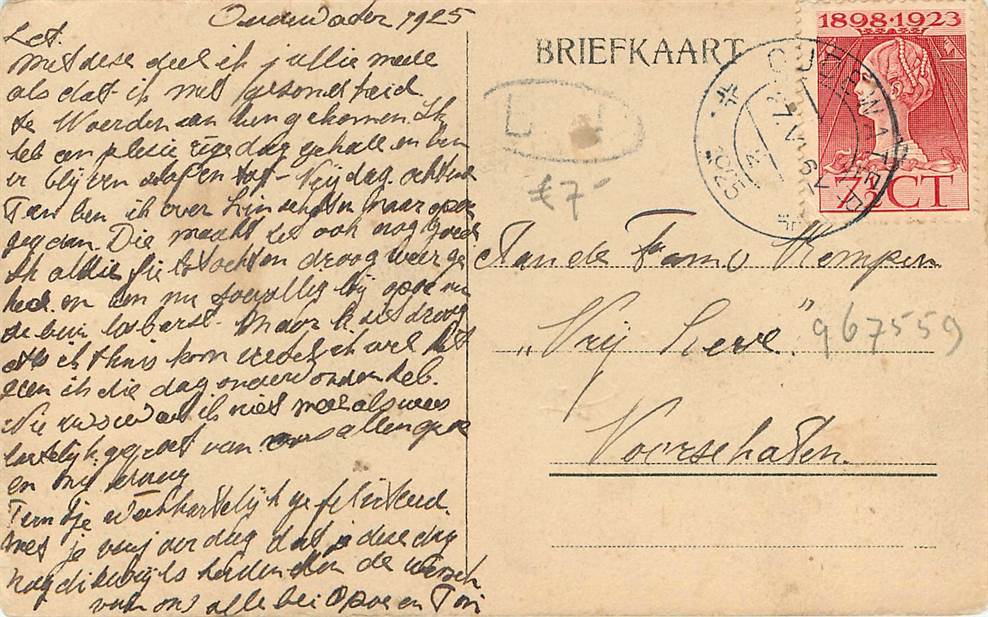 Oudewater 1925
L.S.
Met dese deel ik jullie mede
als dat ik met gesondheid
te Woerden aan ben gekomen. Ik
heb een plesierige dag gehad en ben
er blijven slapen tot Vrijdag ochtend
Toen ben ik over Linschoten naar opoe
gegaan. Die maakt het ook nog goed
Ik al die fietstochten droog weer ge
had en ben nu toevallig bij opoe nu
de bui losbarst. Maar k sit droog
als ik thuis kom vertel ik wel het
geen ik die dag ondervonden heb.
Nu weet ik niet meer als wees
hartelijk gegroet van ons allen opoe
en mij
Teuntje wel hartelijk gefeliciteerd
met je verjaardag dat je dese dag
nog dikwijls herdenken de wensch
van ons alle bei Opoe en Toon
BRIEFKAART
£7-
1898·1923
7½ CT
OUDEWATER
1925
Aan de Fam Kempen
„Vrij Leve”
967559
Voorschoten.